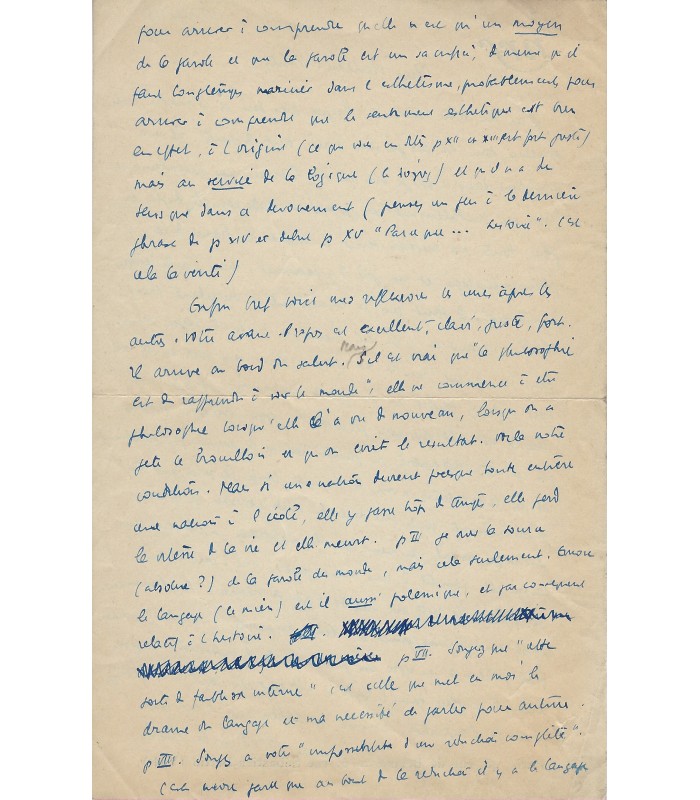 pour arriver à comprendre qu'elle n'est qu'un moyen
de la parole et que la parole est un sacrifice, de même qu'il
faut longtemps mariner dans l'esthétisme, probablement, pour
arriver à comprendre que le sentiment esthétique est bien
en effet, à l'origine (ce que vous en dites p XII et XIII est fort juste)
mais au service de la Logique (le λόγος) et qu'il n'a de
sens que dans ce dévouement (pensez un peu à la dernière
phrase de p XIV et début p XV "Parce que ... histoire". C'est
cela la vérité)
Enfin bref voici mes réflexions les unes après les
autres. Votre avant-Propos est excellent, clair, juste, fort.
Il arrive au bord du salut. Mais s'il est vrai que "la philosophie
est de rapprendre à voir le monde", elle ne commence à être
philosophie lorsqu'elle l'a vu de nouveau, lorsqu'on a
jeté le brouillon et qu'on écrit le résultat. Voilà notre
condition. Mais si une nation devient presque toute entière
une nation à l'école, elle y passe trop de temps, elle perd
la vitesse de la vie et elle meurt. p III je suis la source
(absolue ?) de la parole du monde, mais cela seulement. Encore
le langage (le mien) est il aussi polémique, et par conséquent
relatif à l'histoire.
p VII. Songez que "cette
sorte de faiblesse interne" c'est celle que met en moi le
drame du langage et ma nécessité de parler pour autrui.
p VIII. Songez à votre "impossibilité d'une réduction complète".
C'est parce que au bout de la réduction il y a le langage